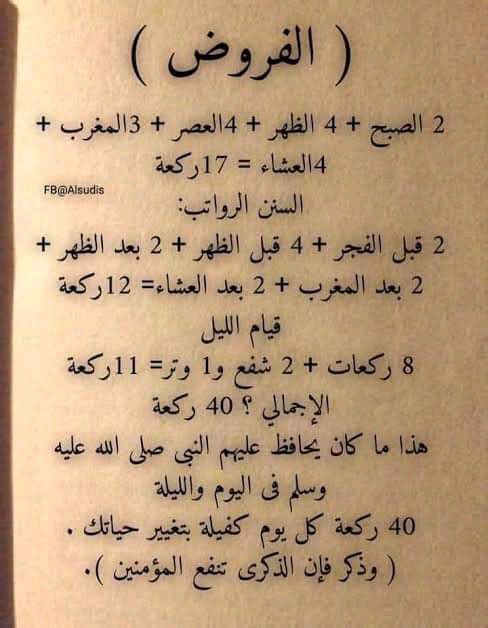 ( الفروض )
2 الصبح + 4 الظهر + 4العصر + 3المغرب +
4العشاء = 17ركعة
FB@Alsudis
السنن الرواتب:
2 قبل الفجر + 4 قبل الظهر + 2 بعد الظهر +
2 بعد المغرب + 2 بعد العشاء= 12ركعة
قيام الليل
8 ركعات + 2 شفع و1 وتر= 11ركعة
الإجمالي ؟ 40 ركعة
هذا ما كان يحافظ عليهم النبى صلى الله عليه
وسلم فى اليوم والليلة
40 ركعة كل يوم كفيلة بتغيير حياتك .
( وذكر فإن الذكرى تنفع المؤمنين ).